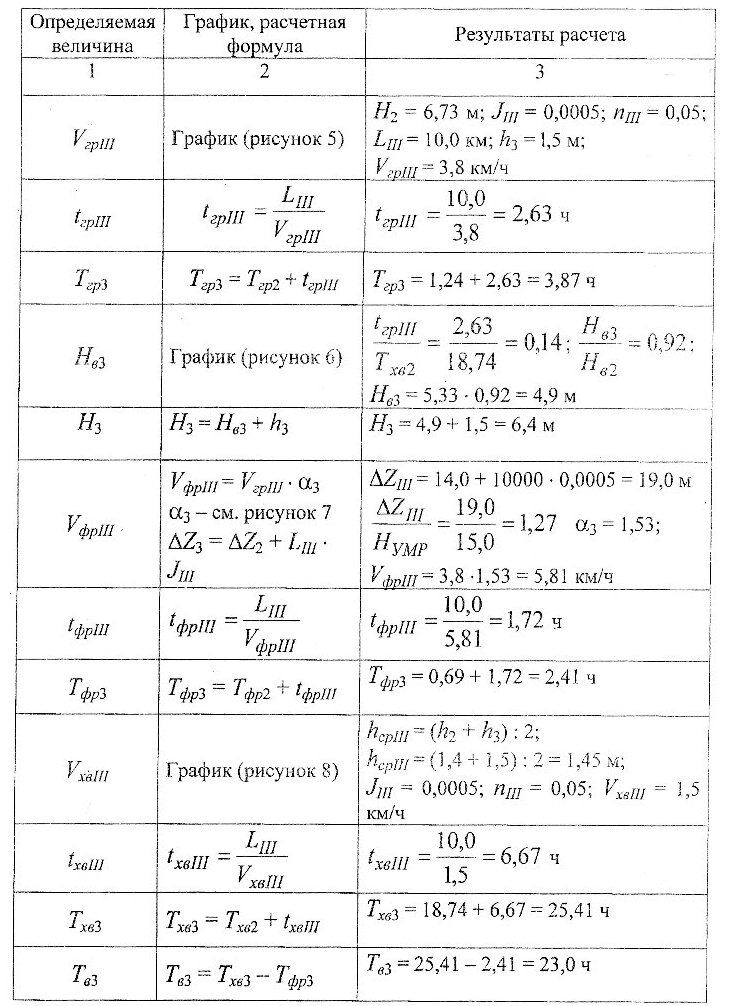 Определяемая величина | График, расчетная формула | Результаты расчета
1 | 2 | 3
V_грIII | График (рисунок 5) | H_2 = 6,73 м; J_III = 0,0005; n_III = 0,05;
L_III = 10,0 км; h_3 = 1,5 м;
V_грIII = 3,8 км/ч
t_грIII | t_грIII = L_III / V_грIII | t_грIII = 10,0 / 3,8 = 2,63 ч
T_гр3 | T_гр3 = T_гр2 + t_грIII | T_гр3 = 1,24 + 2,63 = 3,87 ч
H_в3 | График (рисунок 6) | t_грIII / T_хв2 = 2,63 / 18,74 = 0,14; H_в3 / H_в2 = 0,92;
H_в3 = 5,33 · 0,92 = 4,9 м
H_3 | H_3 = H_в3 + h_3 | H_3 = 4,9 + 1,5 = 6,4 м
V_фрIII | V_фрIII = V_грIII · α_3
α_3 – см. рисунок 7
ΔZ_3 = ΔZ_2 + L_III ·
J_III | ΔZ_III = 14,0 + 10000 · 0,0005 = 19,0 м
ΔZ_III / H_УМР = 19,0 / 15,0 = 1,27 α_3 = 1,53;
V_фрIII = 3,8 ·1,53 = 5,81 км/ч
t_фрIII | t_фрIII = L_III / V_фрIII | t_фрIII = 10,0 / 5,81 = 1,72 ч
T_фр3 | T_фр3 = T_фр2 + t_фрIII | T_фр3 = 0,69 + 1,72 = 2,41 ч
V_хвIII | График (рисунок 8) | h_срIII = (h_2 + h_3) : 2;
h_срIII = (1,4 + 1,5) : 2 = 1,45 м;
J_III = 0,0005; n_III = 0,05; V_хвIII = 1,5
км/ч
t_хвIII | t_хвIII = L_III / V_хвIII | t_хвIII = 10,0 / 1,5 = 6,67 ч
T_хв3 | T_хв3 = T_хв2 + t_хвIII | T_хв3 = 18,74 + 6,67 = 25,41 ч
T_в3 | T_в3 = T_хв3 – T_фр3 | T_в3 = 25,41 – 2,41 = 23,0 ч